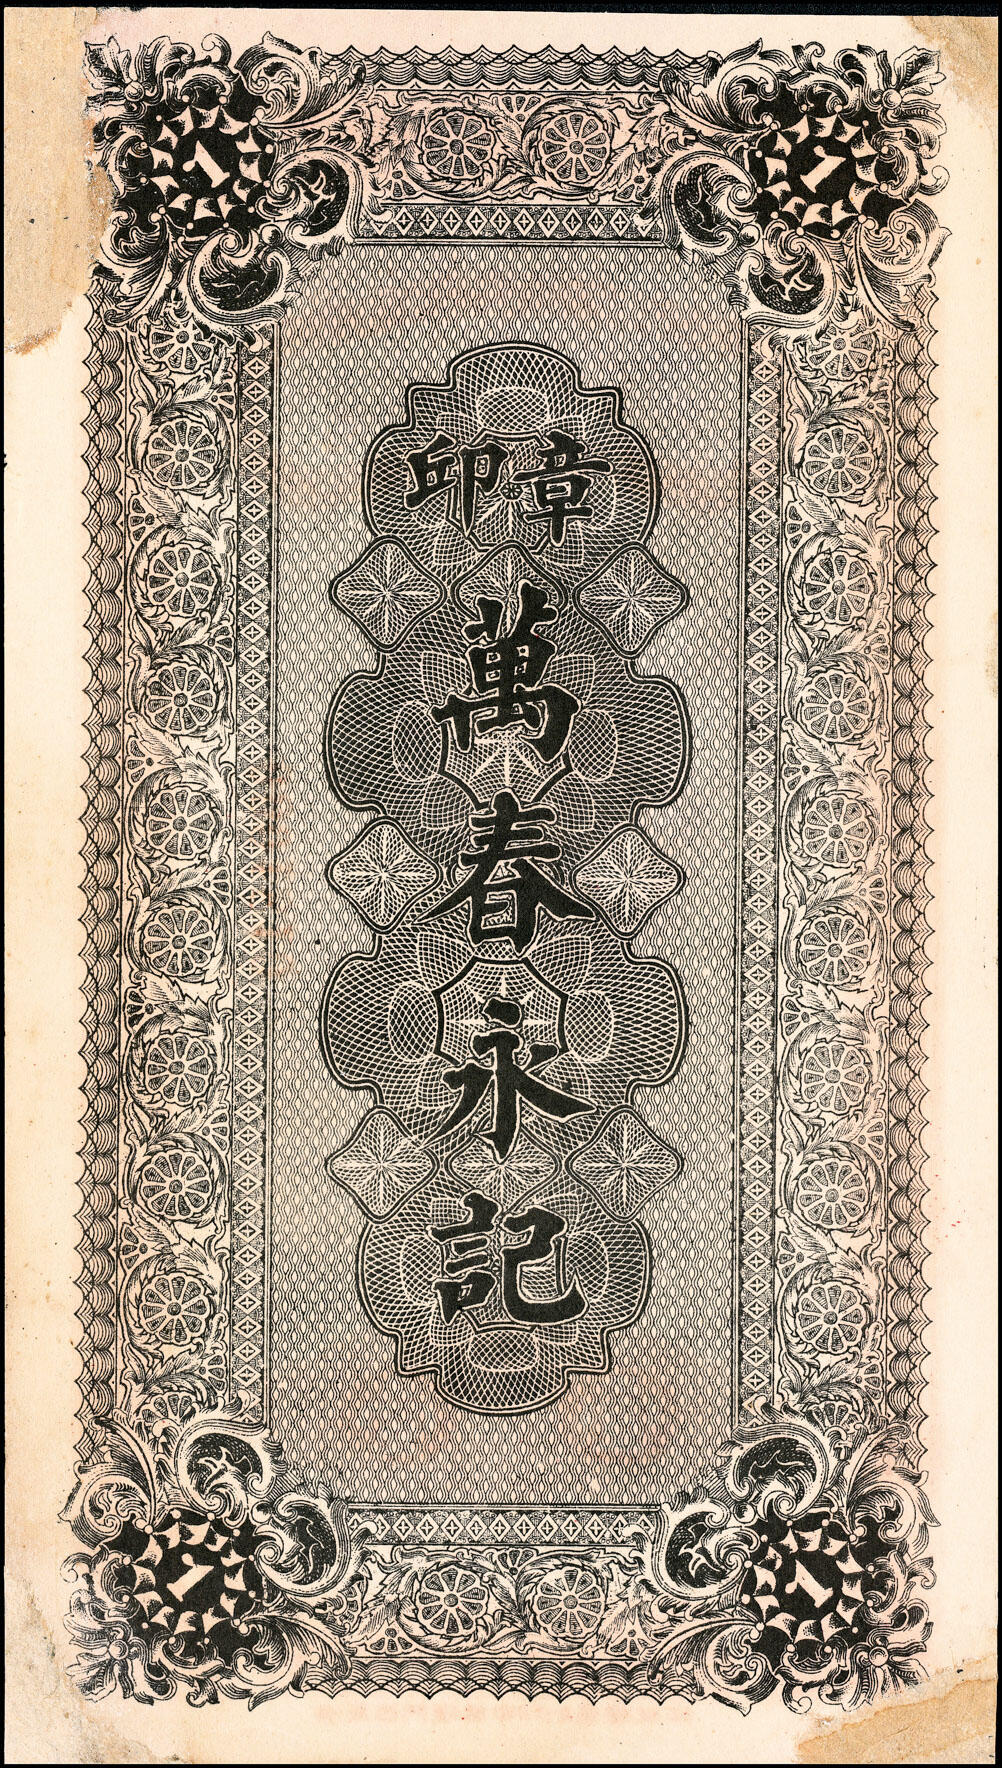 1 1
章印
萬春永記
1 1